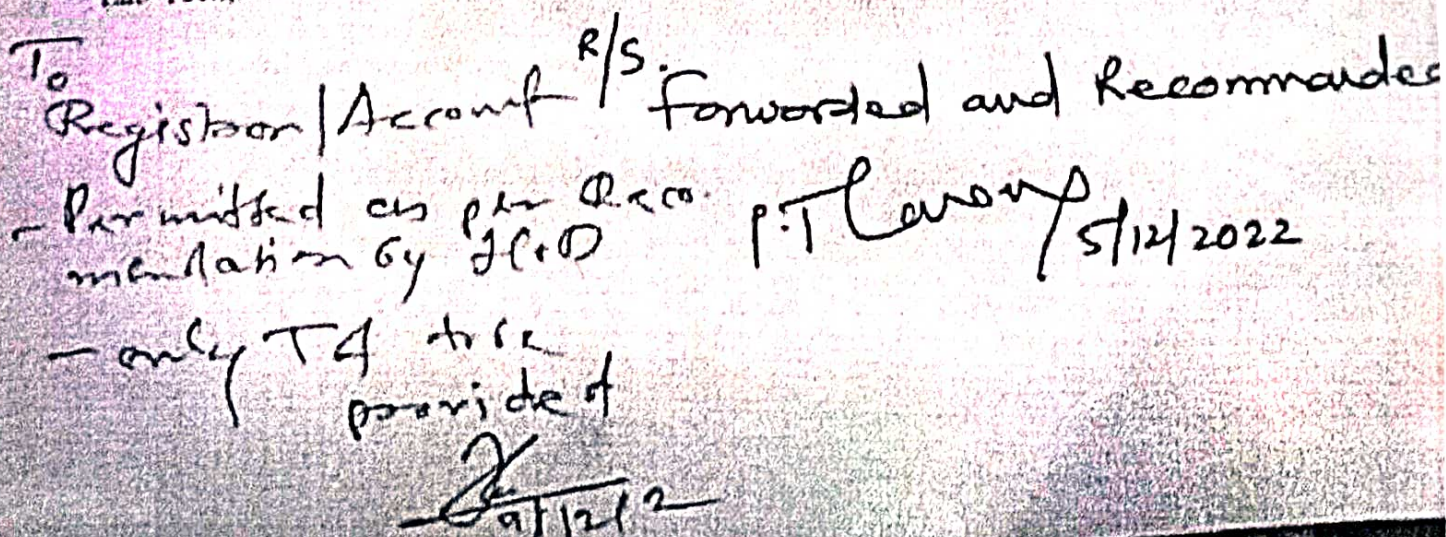 To
Registrar/Account
R/S.
Forworded and Recommanded
- Permitted as per Reco.
mendation by HOD
P.T
5/12/2022
- only TA to be
provided
9/12/2